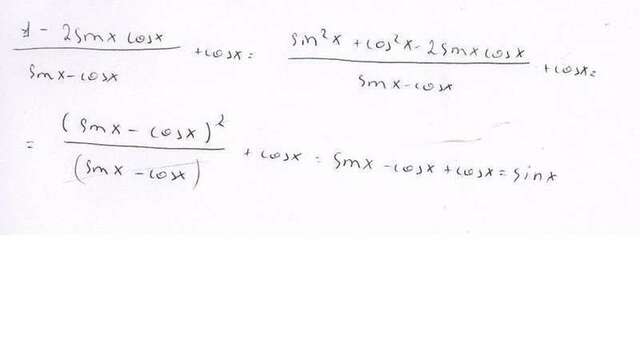 (1 - 2sinx cosx)/(sinx - cosx) + cosx = (sin²x + cos²x - 2sinx cosx)/(sinx - cosx) + cosx =
= (sinx - cosx)²/(sinx - cosx) + cosx = sinx - cosx + cosx = sinx